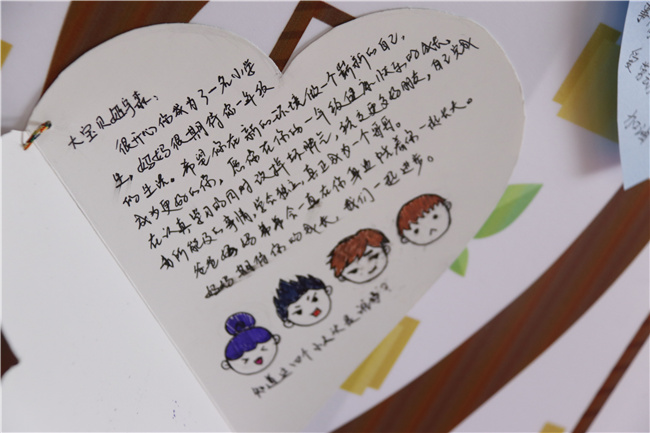 大宝贝
很开心你成为了一名小学
生，妈妈很期待你一年级
的生活。希望你在新的环境做一个崭新的自己，
成为更好的你，愿你在你的一年级健康、快乐的成长。
在认真学习的同时改掉坏脾气，结交更多的朋友，自己完成
力所能及的事情学会独立，真正成为一个哥哥。
爸爸妈妈弟弟会一直在你身边陪着你一起长大。
妈妈期待你的成长，我们一起进步。
知道这四个小人代表谁吗？